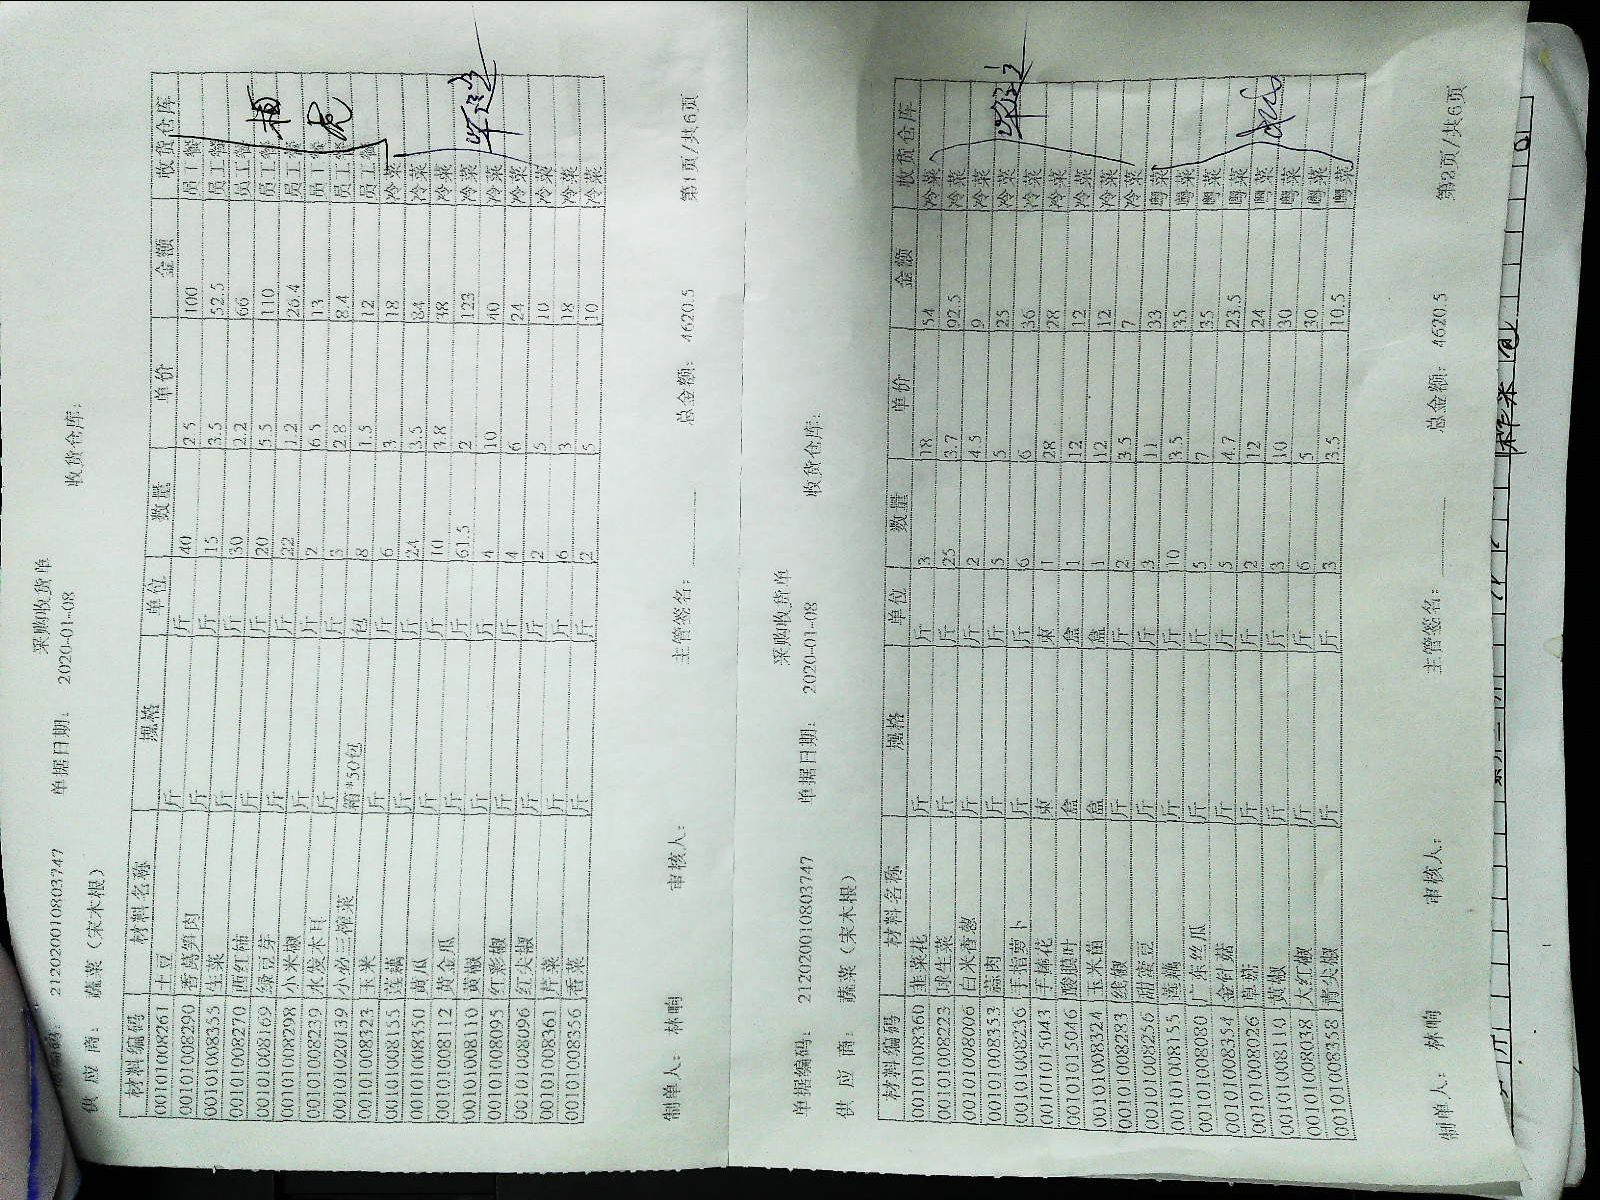 采购收货单
单据编码: 212020010803747 单据日期: 2020-01-08 收货仓库:
供 应 商: 蔬菜（宋木根）
材料编码 材料名称 规格 单位 数量 单价 金额 收货仓库
001010008261 土豆 斤 斤 40 2.5 100 员工餐
001010008290 香莴笋肉 斤 斤 15 3.5 52.5 员工餐
001010008355 生菜 斤 斤 30 2.2 66 员工餐
001010008270 西红柿 斤 斤 20 5.5 110 员工餐
001010008169 绿豆芽 斤 斤 22 1.2 26.4 员工餐
001010008298 小米椒 斤 斤 2 6.5 13 员工餐
001010008239 水发木耳 斤 斤 3 2.8 8.4 员工餐
001010020139 小炒三榨菜 箱*50包 包 8 1.5 12 员工餐
001010008323 玉米 斤 斤 6 3 18 冷菜
001010008155 莲藕 斤 斤 24 3.5 84 冷菜
001010008350 黄瓜 斤 斤 10 3.8 38 冷菜
001010008112 黄金瓜 斤 斤 61.5 2 123 冷菜
001010008110 黄椒 斤 斤 4 10 40 冷菜
001010008095 红彩椒 斤 斤 4 6 24 冷菜
001010008096 红尖椒 斤 斤 2 5 10 冷菜
001010008361 芹菜 斤 斤 6 3 18 冷菜
001010008356 香菜 斤 斤 2 5 10 冷菜
制单人: 林响 审核人: 主管签名: 总金额: 4620.5 第1页/共6页
采购收货单
单据编码: 212020010803747 单据日期: 2020-01-08 收货仓库:
供 应 商: 蔬菜（宋木根）
材料编码 材料名称 规格 单位 数量 单价 金额 收货仓库
001010008360 韭菜花 斤 斤 3 18 54 冷菜
001010008223 球生菜 斤 斤 25 3.7 92.5 冷菜
001010008006 白米香葱 斤 斤 2 4.5 9 冷菜
001010008353 蒜肉 斤 斤 5 5 25 冷菜
001010008236 手指萝卜 斤 斤 6 6 36 冷菜
001010015043 羊棒花 束 束 1 28 28 冷菜
001010015046 酸膜叶 盒 盒 1 12 12 冷菜
001010008324 玉米苗 盒 盒 1 12 12 冷菜
001010008283 线椒 斤 斤 2 3.5 7 冷菜
001010008256 甜蜜豆 斤 斤 3 11 33 粤菜
001010008155 莲藕 斤 斤 10 3.5 35 粤菜
001010008080 广东丝瓜 斤 斤 5 7 35 粤菜
001010008354 金针菇 斤 斤 5 4.7 23.5 粤菜
001010008026 草菇 斤 斤 2 12 24 粤菜
001010008110 黄椒 斤 斤 3 10 30 粤菜
001010008038 大红椒 斤 斤 6 5 30 粤菜
001010008358 青尖椒 斤 斤 3 3.5 10.5 粤菜
制单人: 林响 审核人: 主管签名: 总金额: 4620.5 第2页/共6页